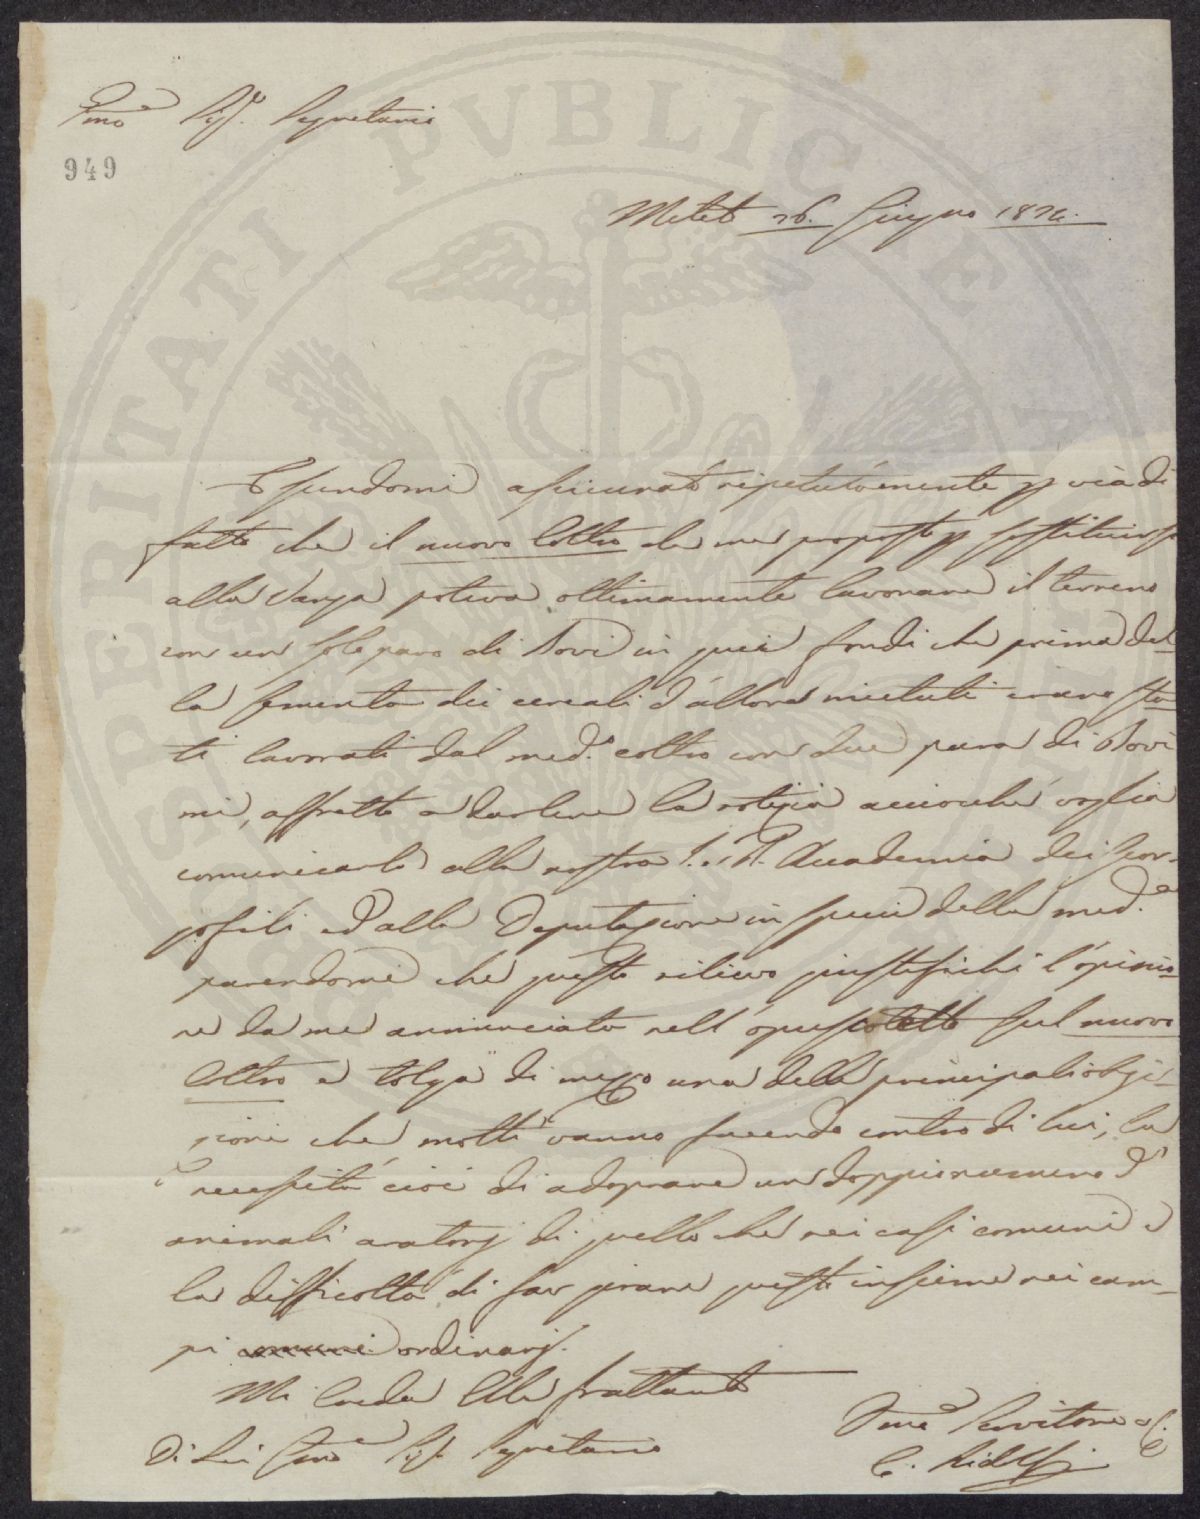 Pmo Sigr. Segretario
949
Meleto 26. Giugno 1824.
Essendomi assicurato ripetutamente p via di
fatto che il nuovo Coltro da me proposto p sostituirsi
alla Vanga poteva ottimamente lavorare il terreno
con un solo paro di Bovi in quei fondi che prima del
la sementa dei cereali d'allora mietuti erano sta
ti lavorati dal medo. coltro con due para di Bovi
mi, affretto a darlene la notizia acciocchè voglia
comunicarla alla nostra I. e R. Accademia dei Geor-
gofili ed alla Deputazione in specie della meda.
parendomi che questo rilievo giustifichi l'opinio
ne da me annunciata nell'opuscoletto sul nuovo
Coltro e tolga di mezzo una delle principali obje-
zioni che molti vanno facendo contro di lui, la
necessità cioè di adoprare un doppio numero d'
animali aratorj di quello che nei casi comuni e
la difficoltà di far girare questi insieme nei cam-
pi comuni ordinarj.
Mi Creda Ella frattanto
Di Lei Pmo Sigr. Segretario
Servitore
C. Ridolfi
PVBLICAE
PROSPERITATI